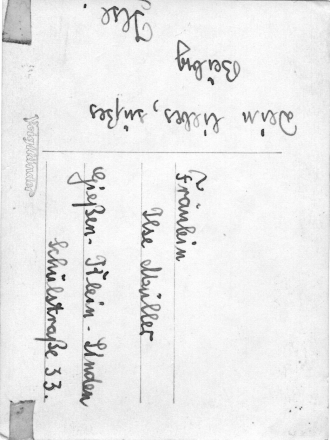 Dein liebes, süßes
Ilse.
Fräulein
Ilse Müller
Gießen-Klein-Linden
Schulstraße 33.